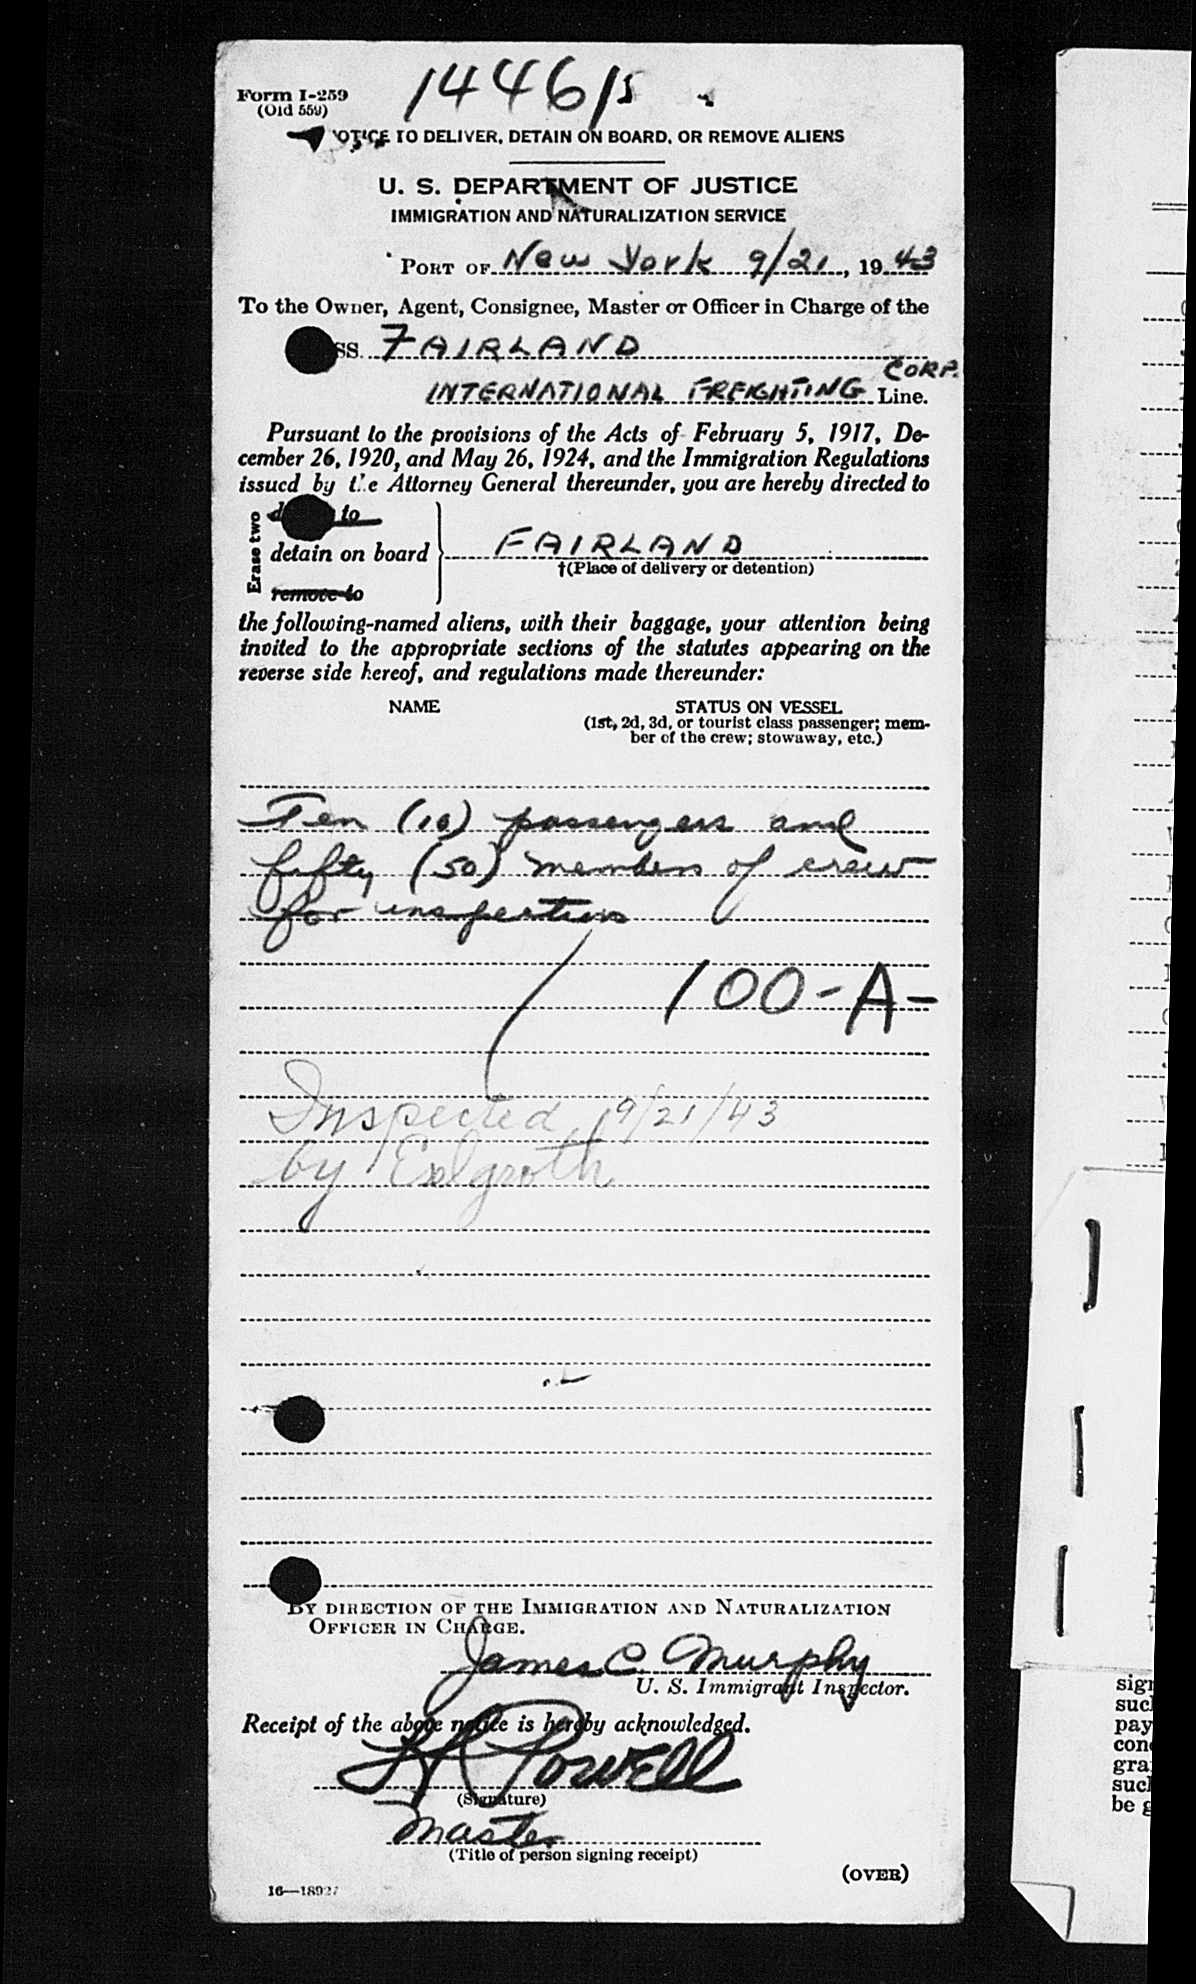 1446/5
Form I-259
(Old 559)
NOTICE TO DELIVER, DETAIN ON BOARD, OR REMOVE ALIENS
U. S. DEPARTMENT OF JUSTICE
IMMIGRATION AND NATURALIZATION SERVICE
PORT OF New York 9/21, 1943
To the Owner, Agent, Consignee, Master or Officer in Charge of the
SS. FAIRLAND
INTERNATIONAL FREIGHTING CORP. Line.
Pursuant to the provisions of the Acts of February 5, 1917, De-
cember 26, 1920, and May 26, 1924, and the Immigration Regulations
issued by the Attorney General thereunder, you are hereby directed to
Erase two
to
detain on board FAIRLAND
†(Place of delivery or detention)
remove to
the following-named aliens, with their baggage, your attention being
invited to the appropriate sections of the statutes appearing on the
reverse side hereof, and regulations made thereunder:
NAME STATUS ON VESSEL
(1st, 2d, 3d, or tourist class passenger; mem-
ber of the crew; stowaway, etc.)
Ten (10) passengers and
fifty (50) members of crew
for inspection
100-A-
Inspected 9/21/43
by
BY DIRECTION OF THE IMMIGRATION AND NATURALIZATION
OFFICER IN CHARGE.
James C. Murphy
U. S. Immigrant Inspector.
Receipt of the above notice is hereby acknowledged.
Powell
(Signature)
Master
(Title of person signing receipt)
(OVER)
sig
suc
pay
con
gra
suc
be g